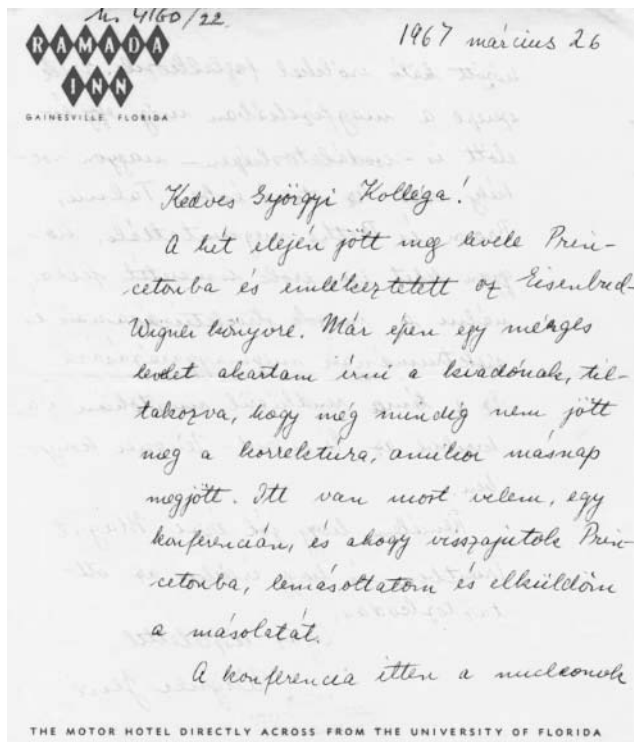 Ms 4160/22
1967 március 26
RAMADA
INN
GAINESVILLE, FLORIDA
Kedves Györgyi Kolléga!
A hét elején jött meg levele Prin-
cetonba és emlékeztetett az Eisenbud-
Wigner könyvre. Már épen egy mérges
levelet akartam írni a kiadónak, til-
takozva, hogy még mindig nem jött
meg a korrektúra, amikor másnap
megjött. Itt van most velem, egy
konferencián, és ahogy visszajutok Prin-
cetonba, lemásoltatom és elküldöm
a másolatát.
A konferencia itten a nucleonok
THE MOTOR HOTEL DIRECTLY ACROSS FROM THE UNIVERSITY OF FLORIDA